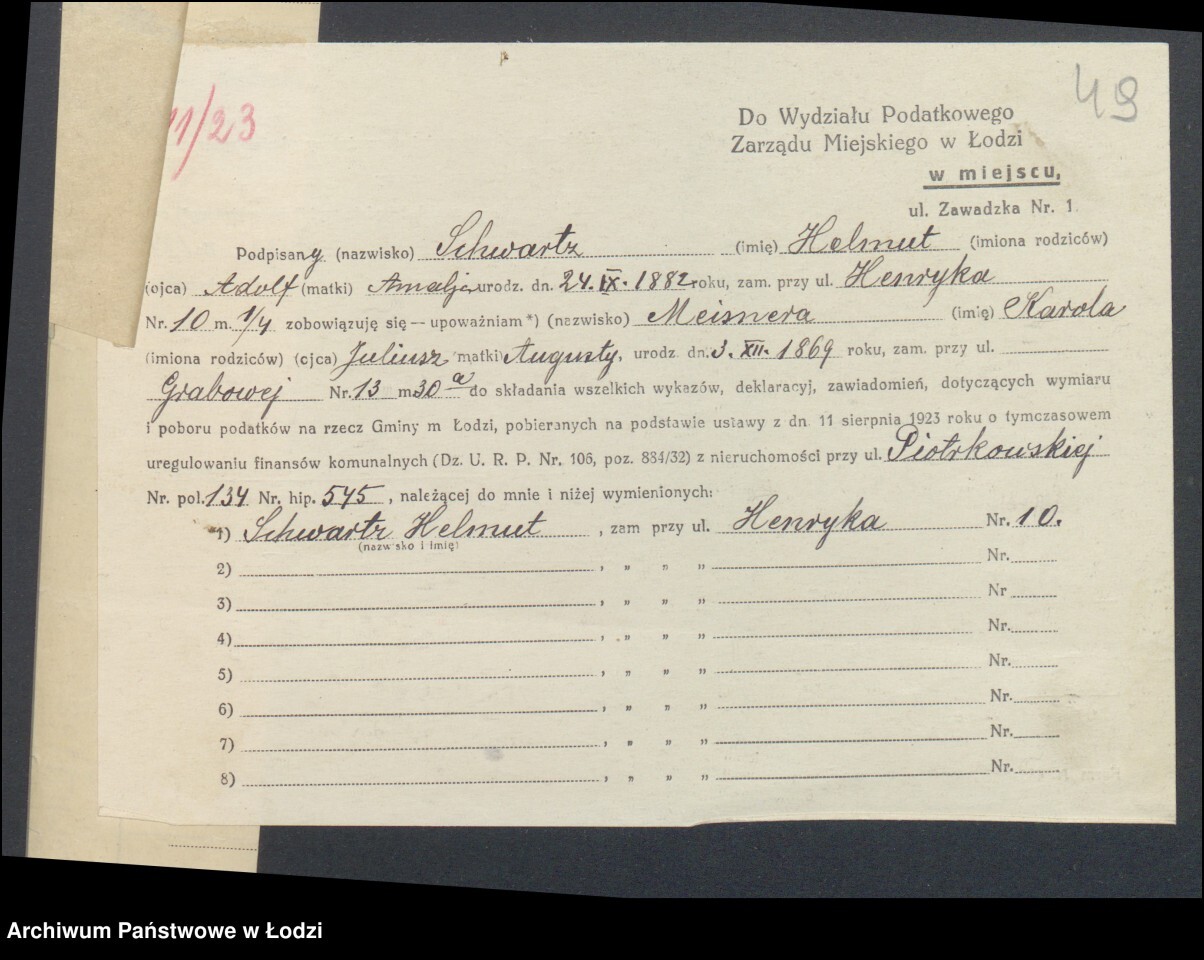 11/23
49
Do Wydziału Podatkowego
Zarządu Miejskiego w Łodzi
w miejscu,
ul. Zawadzka Nr. 1.
Podpisany (nazwisko) Schwartz (imię) Helmut (imiona rodziców)
(ojca) Adolf (matki) Amalja urodz. dn. 24. IX. 1882 roku, zam. przy ul. Henryka
Nr. 10 m. 1/4 zobowiązuję się — upoważniam *) (nazwisko) Meisnera (imię) Karola
(imiona rodziców) (ojca) Juliusz (matki) Augusty, urodz dn. 3. XII. 1869 roku, zam. przy ul.
Grabowej Nr. 13 m 30 a do składania wszelkich wykazów, deklaracyj, zawiadomień, dotyczących wymiaru
i poboru podatków na rzecz Gminy m Łodzi, pobieranych na podstawie ustawy z dn. 11 sierpnia 1923 roku o tymczasowem
uregulowaniu finansów komunalnych (Dz. U. R. P. Nr. 106, poz. 884/32) z nieruchomości przy ul. Piotrkowskiej
Nr. pol. 134 Nr. hip. 545, należącej do mnie i niżej wymienionych:
1) Schwartz Helmut, zam przy ul. Henryka Nr. 10.
(nazwisko i imię)
2) , „ „ „ Nr.
3) , „ „ „ Nr
4) , „ „ „ Nr.
5) , „ „ „ Nr.
6) , „ „ „ Nr.
7) , „ „ „ Nr.
8) , „ „ „ Nr.
Archiwum Państwowe w Łodzi